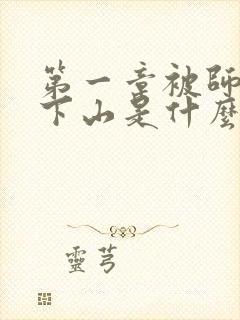 第一章被師
下山是什麼
靈芎